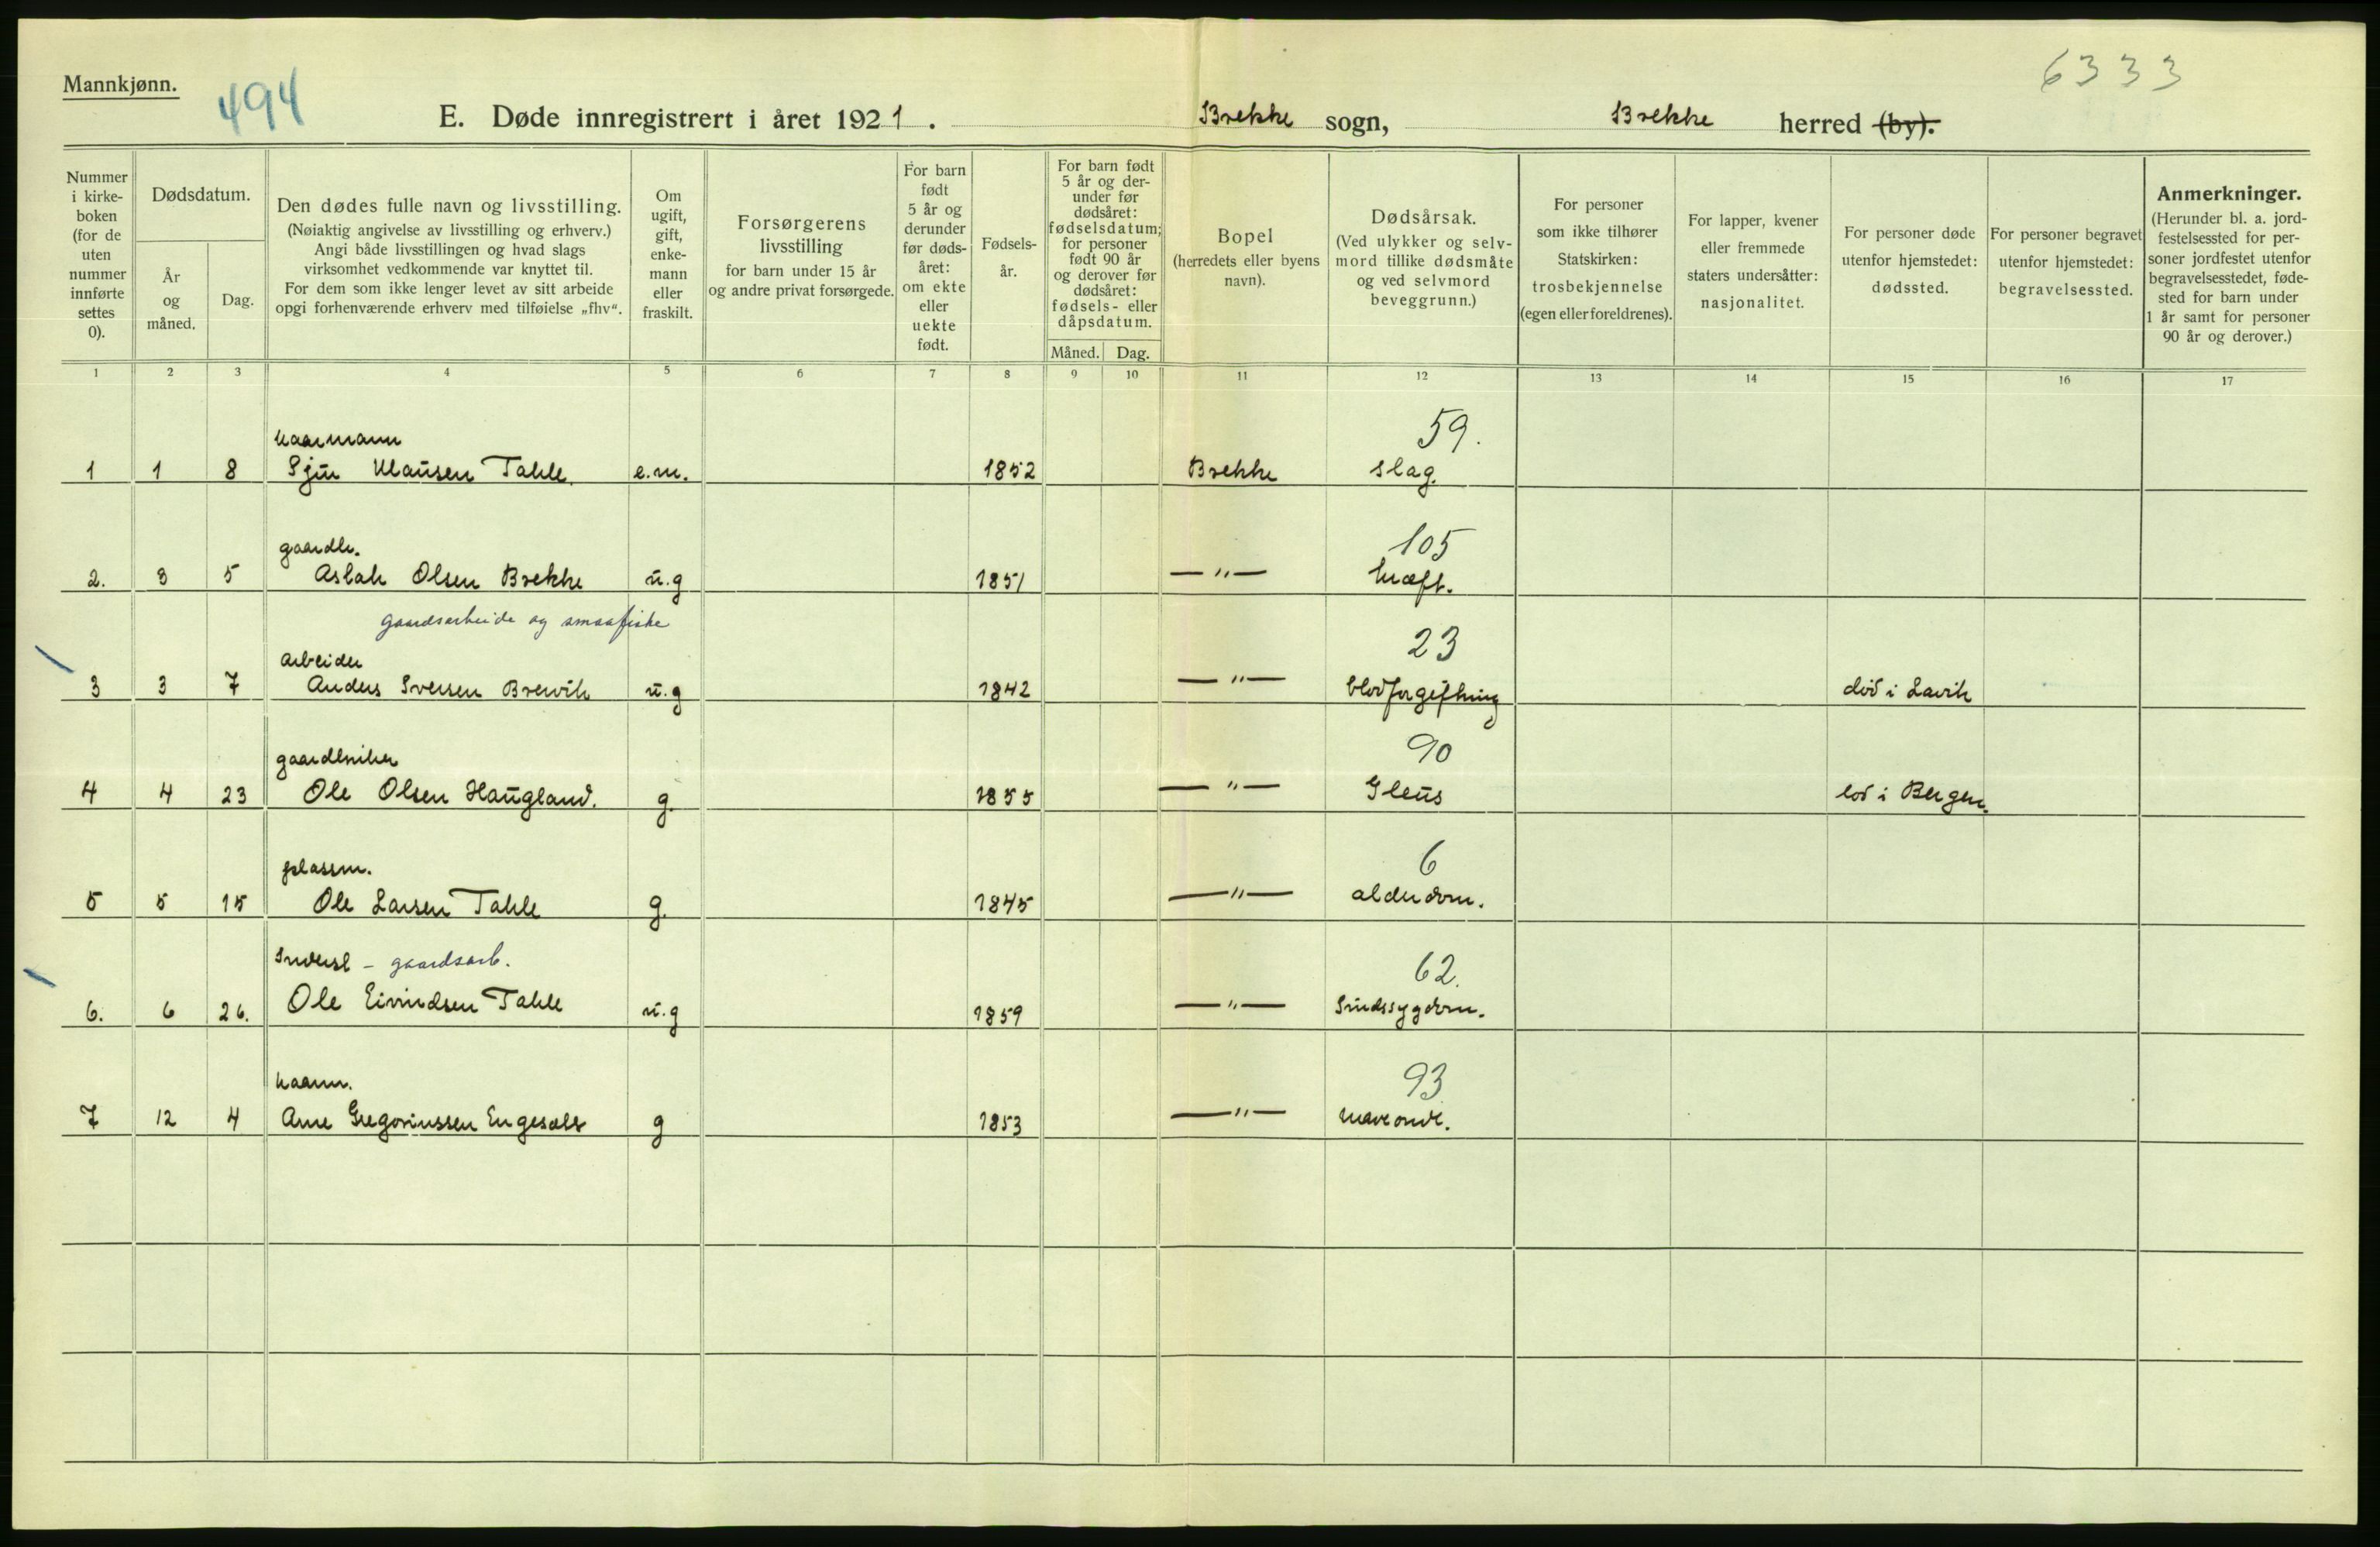 Mannkjønn.
494
6333
E. Døde innregistrert i året 1921. Brekke sogn, Brekke herred (by).
Nummer i kirke-boken (for de uten nummer innførte settes 0).
Dødsdatum.
År og måned.
Dag.
Den dødes fulle navn og livsstilling.
(Nøiaktig angivelse av livsstilling og erhverv.)
Angi både livsstillingen og hvad slags
virksomhet vedkommende var knyttet til.
For dem som ikke lenger levet av sitt arbeide
opgi forhenværende erhverv med tilføielse „fhv“.
Om ugift, gift, enke-mann eller fraskilt.
Forsørgerens
livsstilling
for barn under 15 år
og andre privat forsørgede.
For barn født 5 år og derunder før døds-året: om ekte eller uekte født.
Fødsels-år.
For barn født 5 år og der-under før dødsåret: fødselsdatum; for personer født 90 år og derover før dødsåret: fødsels- eller dåpsdatum.
Måned. Dag.
Bopel
(herredets eller byens
navn).
Dødsårsak.
(Ved ulykker og selv-
mord tillike dødsmåte
og ved selvmord
beveggrunn.)
For personer
som ikke tilhører
Statskirken:
trosbekjennelse
(egen eller foreldrenes).
For lapper, kvener
eller fremmede
staters undersåtter:
nasjonalitet.
For personer døde
utenfor hjemstedet:
dødssted.
For personer begravet
utenfor hjemstedet:
begravelsessted.
Anmerkninger.
(Herunder bl. a. jord-
festelsessted for per-
soner jordfestet utenfor
begravelsesstedet, føde-
sted for barn under
1 år samt for personer
90 år og derover.)
1 2 3 4 5 6 7 8 9 10 11 12 13 14 15 16 17
kaarmann 59.
1 1 8 Sjur Klausen Takle e.m. 1852 Brekke slag.
gaardbr. 105
2. 3 5 Aslak Olsen Brekke u.g 1851 —"— kræft.
gaardsarbeide og smaafiske
arbeider 23
3 3 7 Anders Iversen Brervik u.g 1842 —"— blodforgiftning død i Lavik
gaardbruker 90
4 4 23 Ole Olsen Haugland. g. 1855 —"— Ileus død i Bergen.
plassm. 6
5 5 15 Ole Larsen Takle g. 1845 —"— alderdom.
Inderst - gaardsarb. 62.
6. 6 26. Ole Eivindsen Takle u.g 1859 —"— Sindssygdom.
kaarm. 93
7 12 4 Arne Gregoriussen Engesæter g 1853 —"— maveonde.